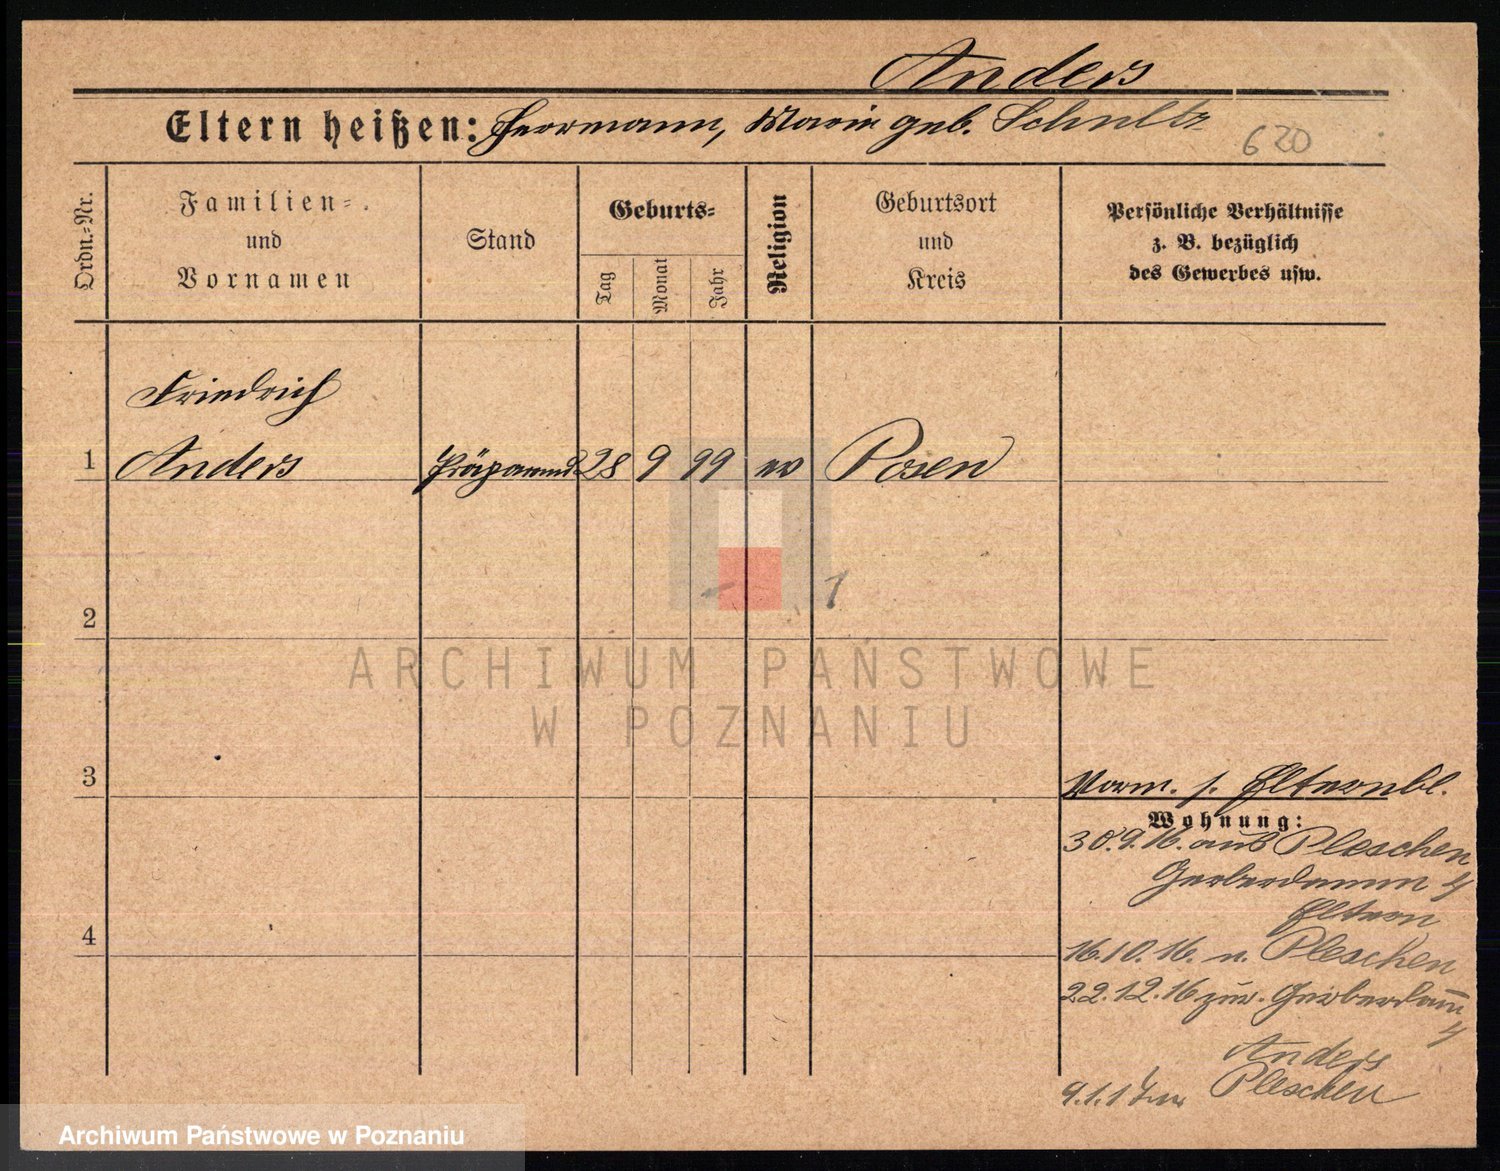 Anders
Eltern heißen: Herrmann, Marie geb. Schultz
620
Ordn.-Nr.
Familien-
und
Vornamen
Stand
Geburts-
Tag
Monat
Jahr
Religion
Geburtsort
und
Kreis
Persönliche Verhältnisse
z. B. bezüglich
des Gewerbes usw.
Friedrich
1 Anders Präparand 28 9 99 ev Posen
2
3
4
Vorm. s. Elternbl.
Wohnung:
30.9.16. aus Pleschen
Gerberdamm 4
Eltern
16.10.16. n. Pleschen
22.12.16 zur. Gerberdamm
4
Anders
9.1.17 n. Pleschen
ARCHIWUM PAŃSTWOWE
W POZNANIU
Archiwum Państwowe w Poznaniu